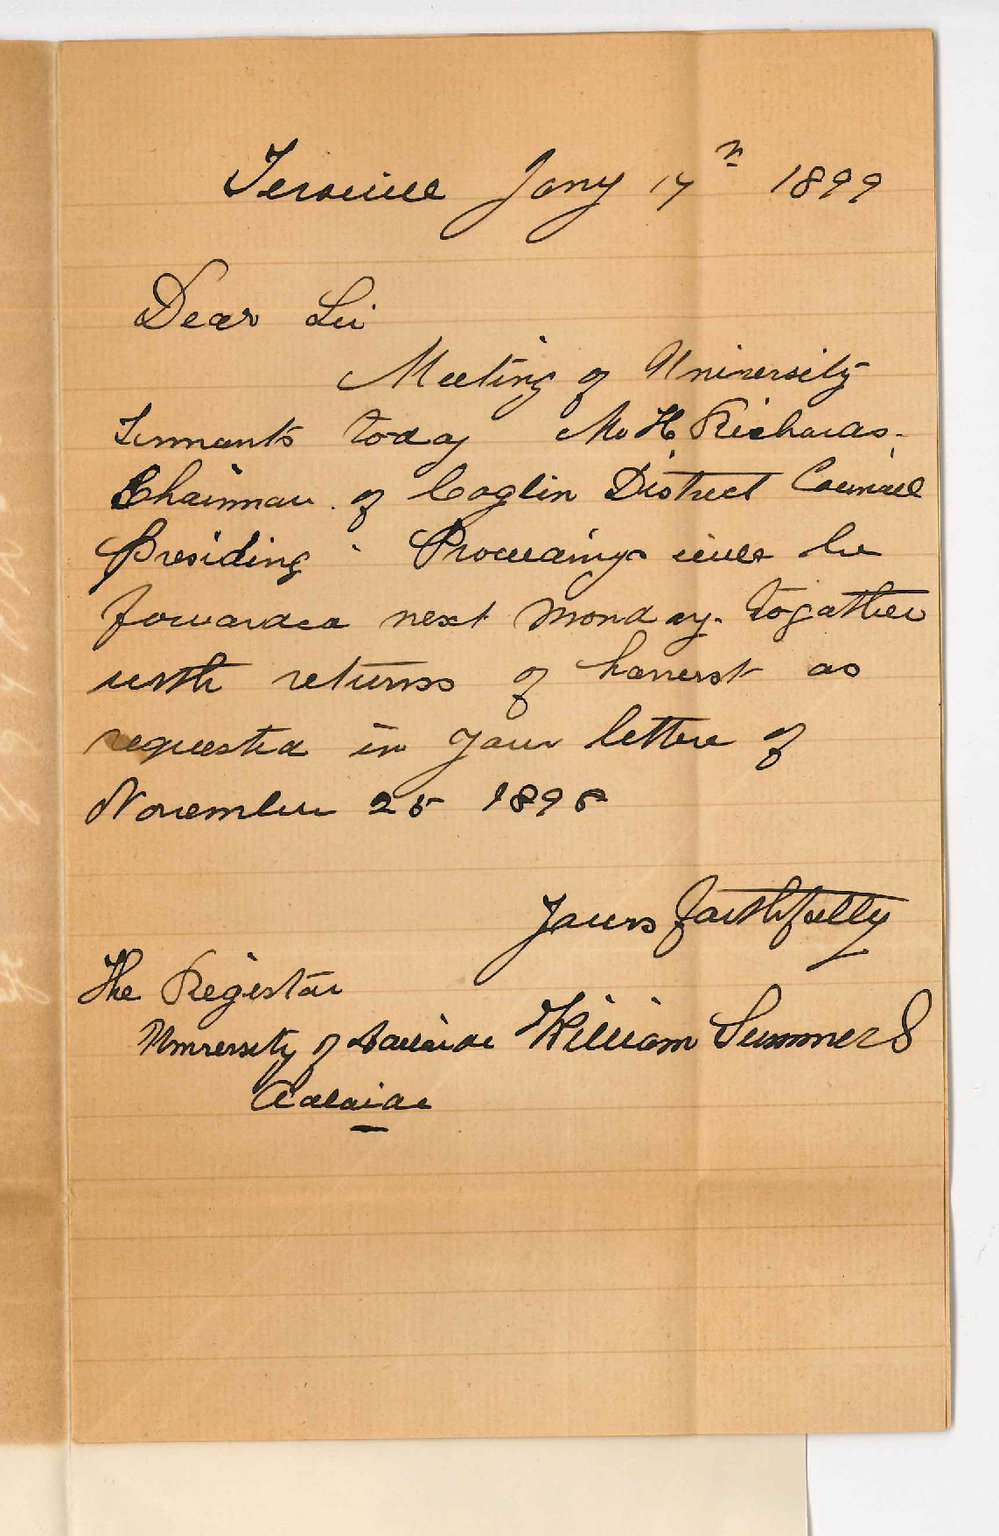 Terowie Jany 17th 1899
Dear Sir
Meeting of University
Tennants today Mr H Richards.
Chairman of Coglin District Council
Presiding. Proceedings will be
forwarded next Monday. togather
with returns of harvest as
requested in your letter of
November 25 1898
Yours faithfully
The Registar
University of Adelaide William Summers
Adelaide